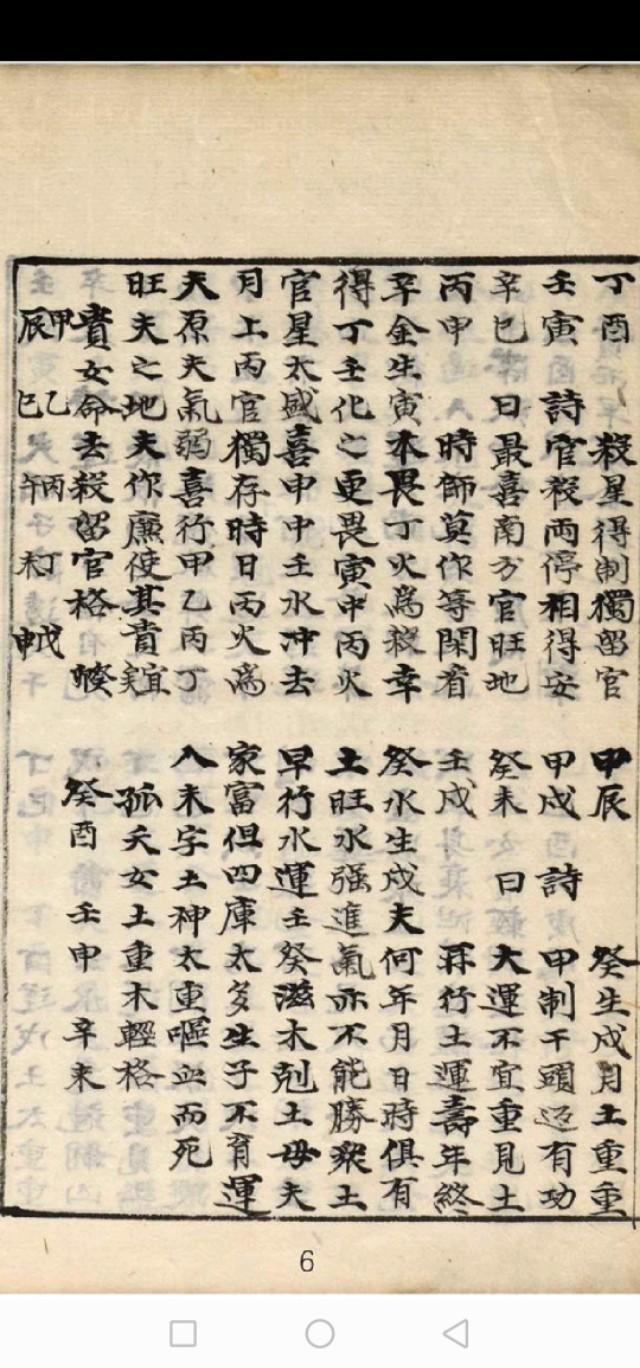 丁酉 殺星得制獨留官
壬寅 詩官殺両停相得安
辛巳 曰最喜南方官旺地
丙申 時師莫作等閑看
辛金生寅本畏丁火為殺幸
得丁壬化之更畏寅中丙火
官星太盛喜申中壬水冲去
月上丙官獨存時日丙火為
夫原夫氣弱喜行甲乙丙丁
旺夫之地夫作廉使其貴宜
貴女命去殺留官格 癸卯
甲辰 乙巳 丙午 丁未 戊申
甲辰 癸生戌月土重重
甲戌 詩 甲制干頭有功
癸未 曰 大運不宜重見土
壬戌 再行土運壽年終
癸水生戌夫何年月日時俱有
土旺水强進氣亦不能勝衆土
早行水運壬癸滋木剋土毋夫
家富但四庫太多生子不育運
入未字土神太重嘔血而死
孤夭女土重木輕格
癸酉 壬申 辛未
6